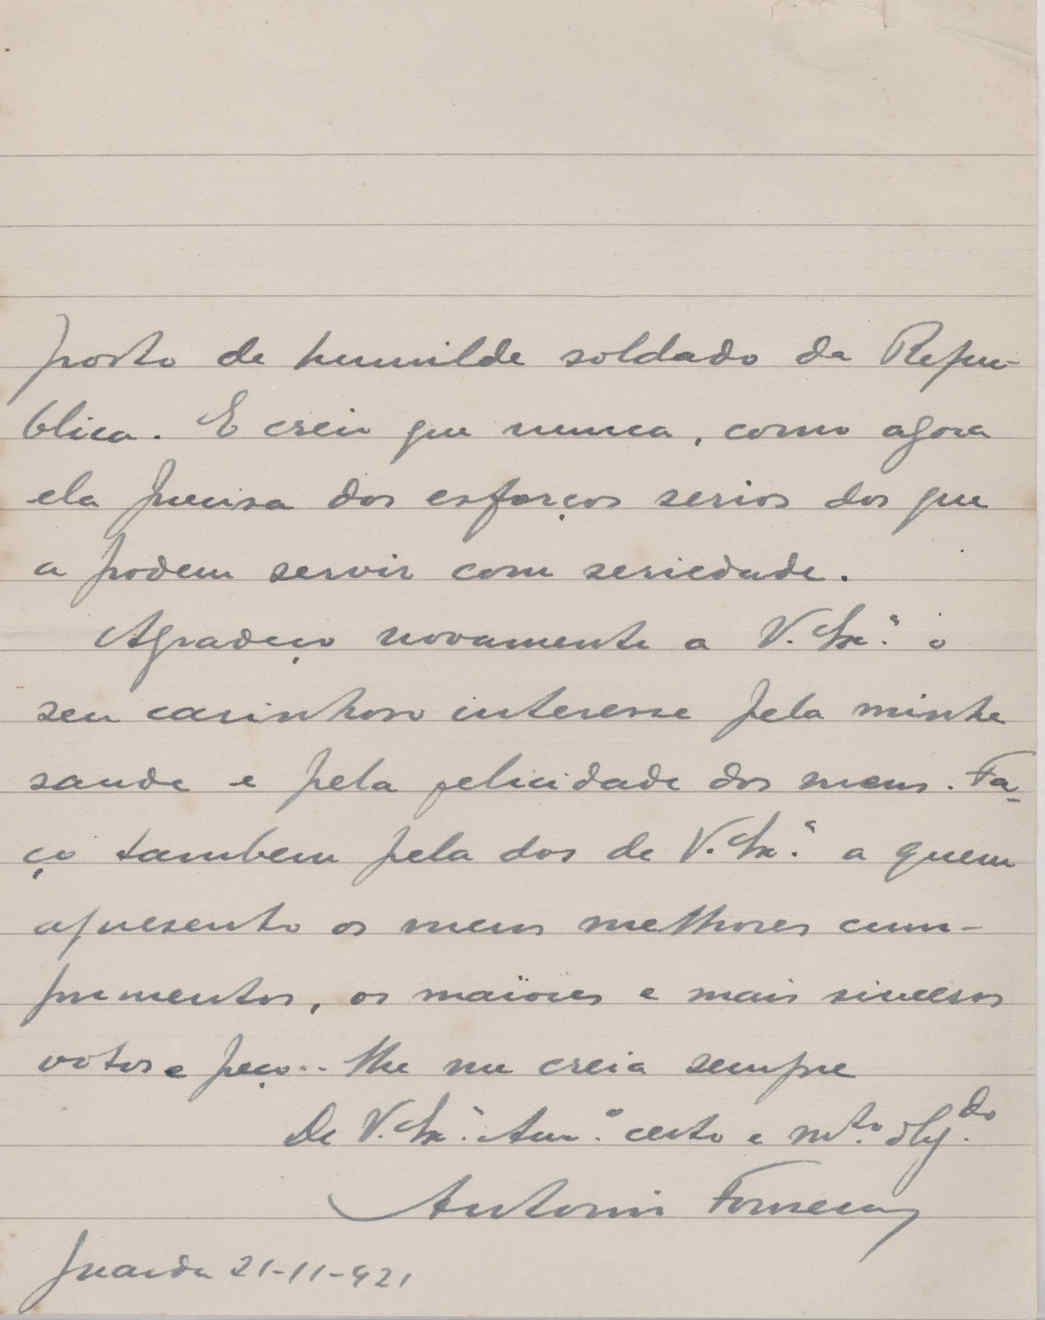 posto de humilde soldado da Repu-
blica. E creio que nunca, como agora
ela precisa dos esforços serios dos que
a podem servir com seriedade.
Agradeço novamente a V. Exª. o
seu carinhoso interesse pela minha
saude e pela felicidade dos meus. Fa-
ço tambem pela dos de V. Exª. a quem
apresento os meus melhores cum-
primentos, os maiores e mais sinceros
votos e peço-lhe me creia sempre
De V. Exª. Am.º certo e m.to obg.do
Antonio Fonseca
Guarda 21-11-921